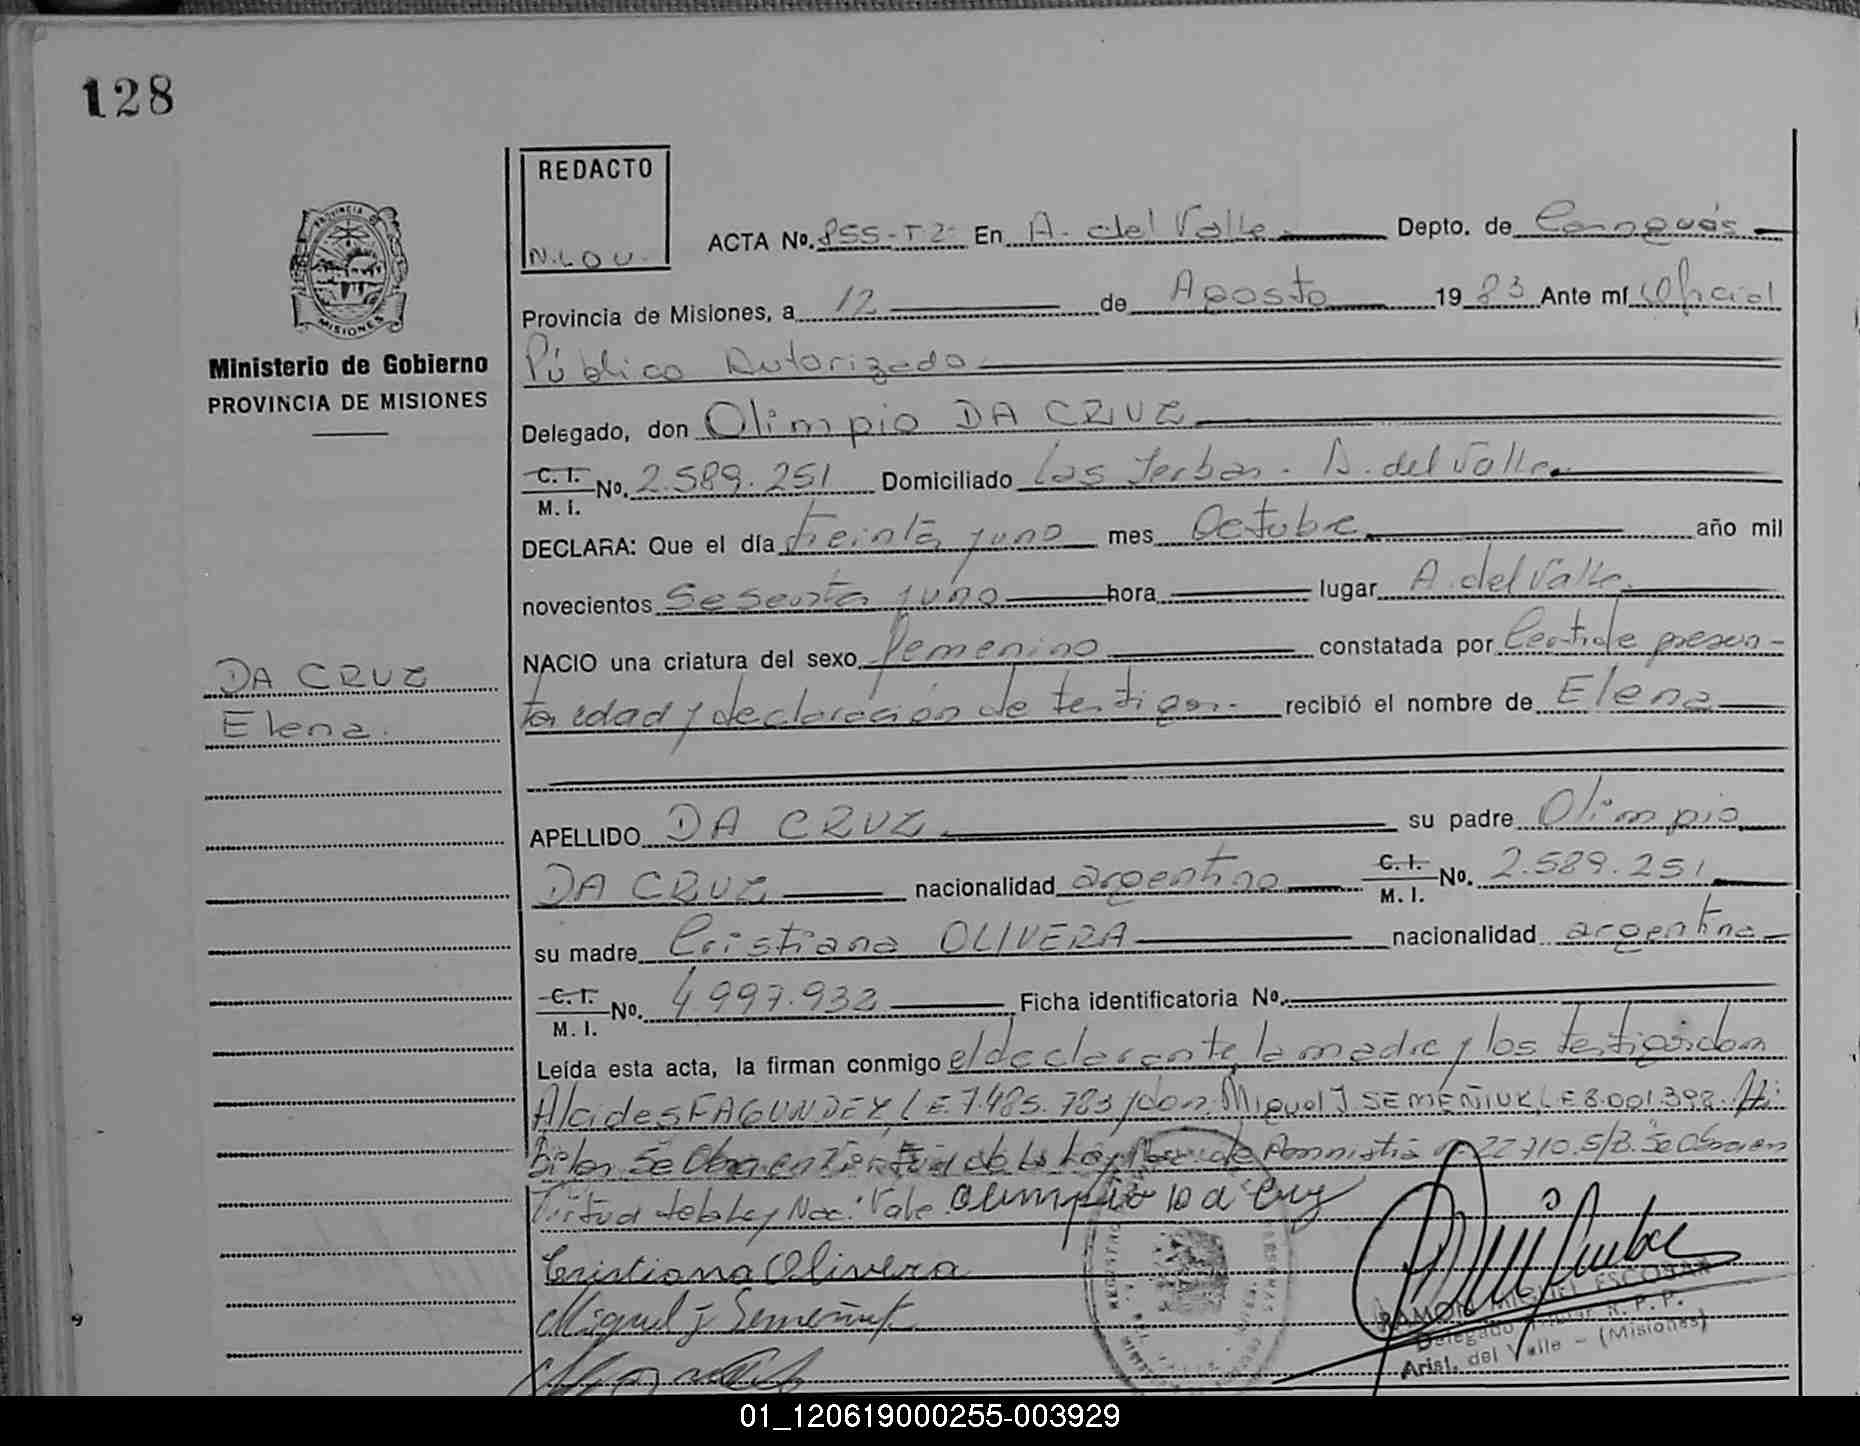 128
REDACTO
N.LOV.
PROVINCIA DE
MISIONES
Ministerio de Gobierno
PROVINCIA DE MISIONES
ACTA No. 855-T2- En A. del Valle Depto. de Cainguás
Provincia de Misiones, a 12 de Agosto 1983 Ante mí Oficial
Público Autorizado
Delegado, don Olimpio DA CRUZ
C. I. M. I. No. 2.589.251 Domiciliado Las Yerbas - A. del Valle
DECLARA: Que el día treinta y uno mes Octubre año mil
novecientos Sesenta y uno hora lugar A. del Valle
NACIO una criatura del sexo femenino constatada por Cert. de presun-
DA CRUZ
Elena.
ta edad y declaración de testigos.- recibió el nombre de Elena
APELLIDO DA CRUZ su padre Olimpio
DA CRUZ nacionalidad argentino C. I. M. I. No. 2.589.251
su madre Cristiana OLIVERA nacionalidad argentina
C. I. M. I. No. 4.997.932 Ficha identificatoria No.
Leída esta acta, la firman conmigo el declarante la madre y los testigos don
Alcides FAGUNDEZ, L.E. 7.485.783 y don Miguel J. SEMEÑIUK, L.E 8.001.398.
Se Obra en de la Ley Nac. de Amnistia 22.710. S/B. Se Obra en
Virtud de la Ley Nac. Vale Olimpio da Cruz
Cristiana Olivera
Miguel J Semeñuk
RAMON MIGUEL ESCOBAR
Delegado Titular R. P. P.
Arist. del Valle - (Misiones)
01_120619000255-003929